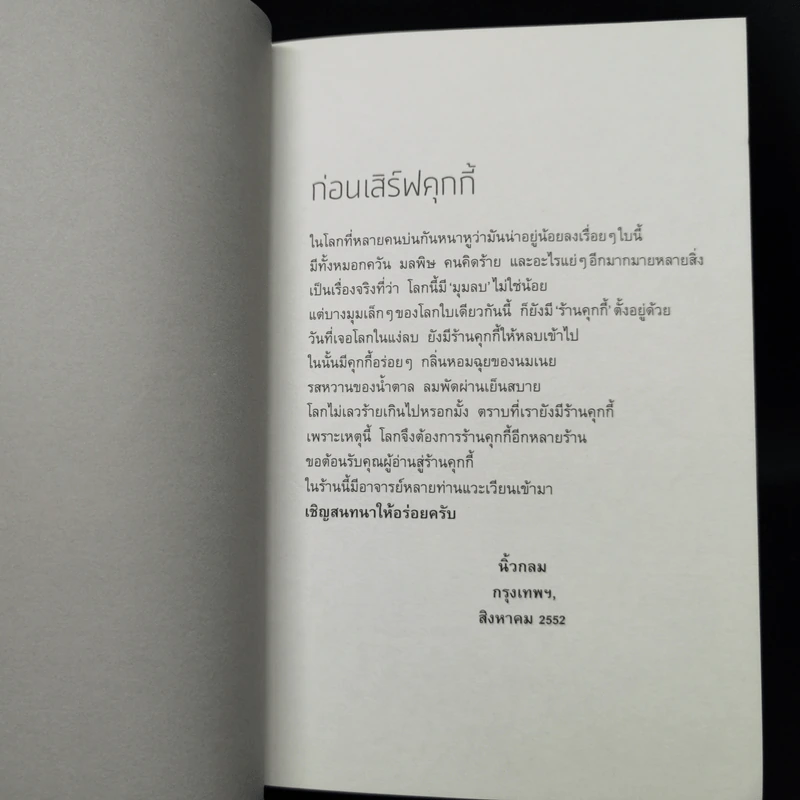 ก่อนเสิร์ฟคุกกี้
ในโลกที่หลายคนบ่นกันหนาหูว่ามันน่าอยู่น้อยลงเรื่อยๆใบนี้
มีทั้งหมอกควัน มลพิษ คนคิดร้าย และอะไรแย่ๆอีกมากมายหลายสิ่ง
เป็นเรื่องจริงที่ว่า โลกนี้มี 'มุมลบ' ไม่ใช่น้อย
แต่บางมุมเล็กๆของโลกใบเดียวกันนี้ ก็ยังมี 'ร้านคุกกี้' ตั้งอยู่ด้วย
วันที่เจอโลกในแง่ลบ ยังมีร้านคุกกี้ให้หลบเข้าไป
ในนั้นมีคุกกี้อร่อยๆ กลิ่นหอมฉุยของนมเนย
รสหวานของน้ำตาล ลมพัดผ่านเย็นสบาย
โลกไม่เลวร้ายเกินไปหรอกมั้ง ตราบที่เรายังมีร้านคุกกี้
เพราะเหตุนี้ โลกจึงต้องการร้านคุกกี้อีกหลายร้าน
ขอต้อนรับคุณผู้อ่านสู่ร้านคุกกี้
ในร้านนี้มีอาจารย์หลายท่านแวะเวียนเข้ามา
เชิญสนทนาให้อร่อยครับ
นิ้วกลม
กรุงเทพฯ,
สิงหาคม 2552